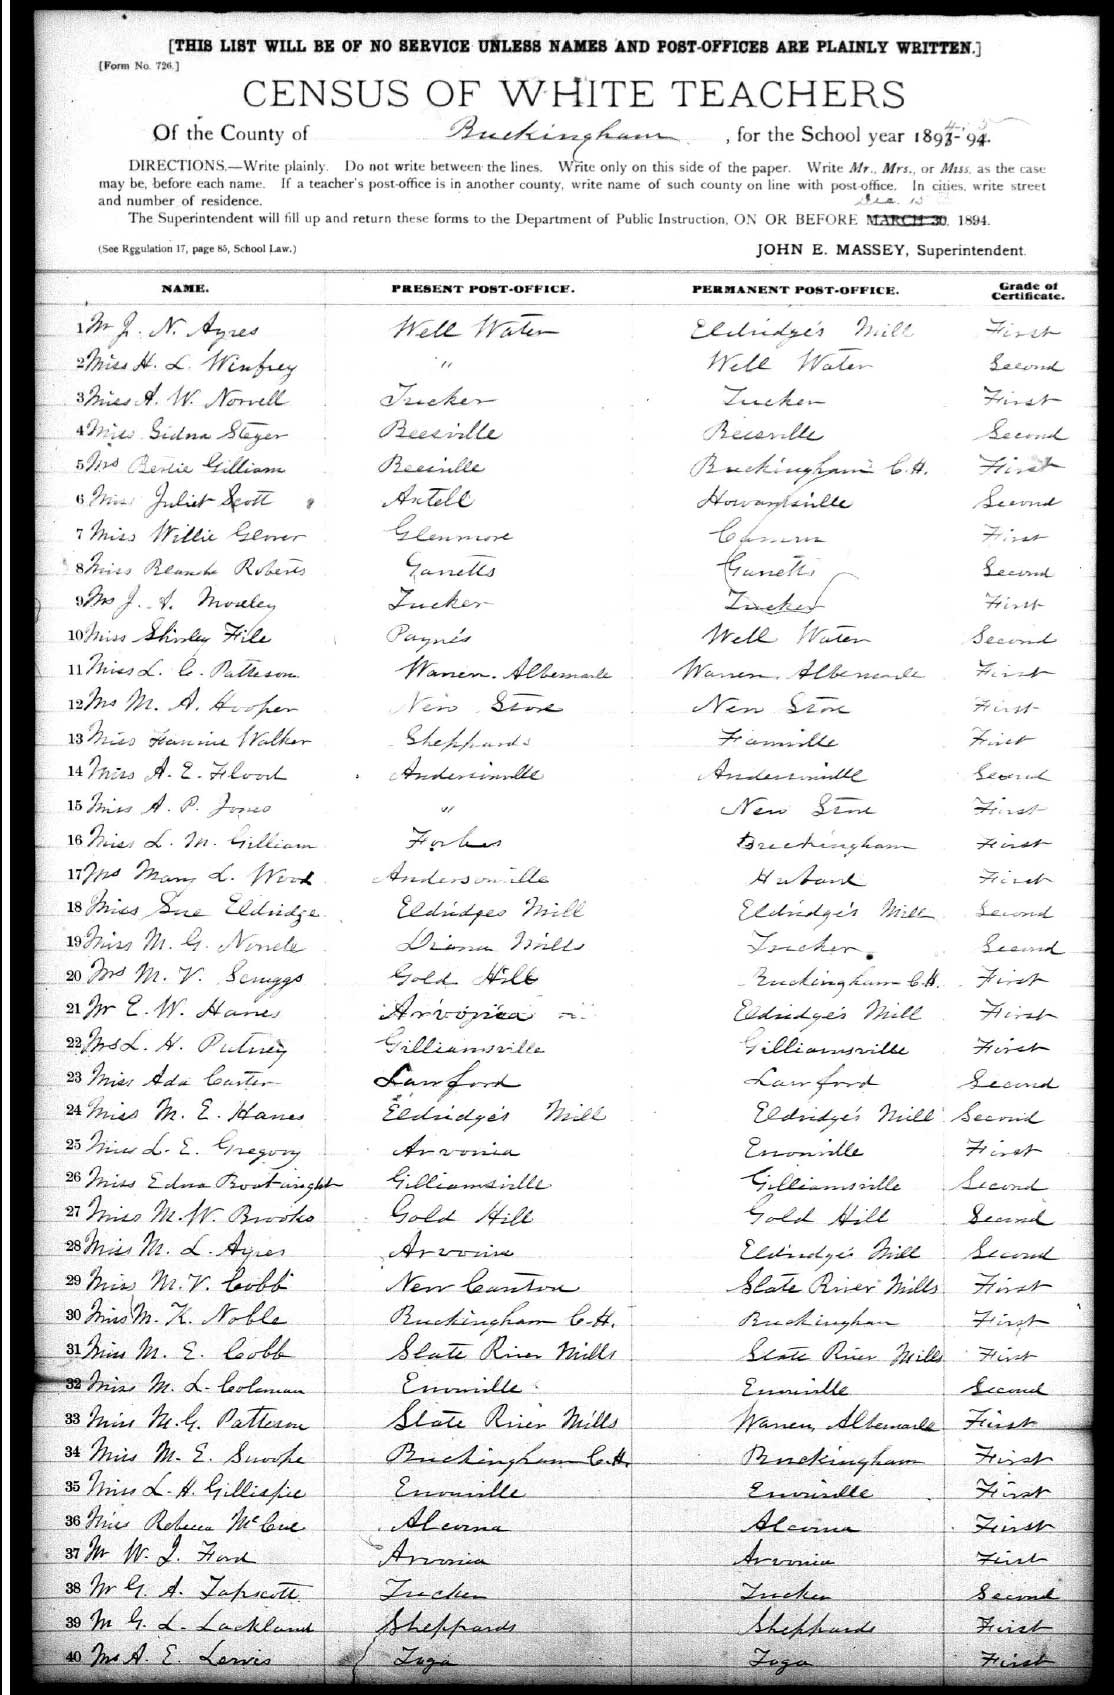 [THIS LIST WILL BE OF NO SERVICE UNLESS NAMES AND POST-OFFICES ARE PLAINLY WRITTEN.]
[Form No. 726.]
CENSUS OF WHITE TEACHERS
Of the County of Buckingham, for the School year 1893-'94.
DIRECTIONS.—Write plainly. Do not write between the lines. Write only on this side of the paper. Write Mr., Mrs., or Miss, as the case
may be, before each name. If a teacher's post-office is in another county, write name of such county on line with post-office. In cities, write street
and number of residence. Dec. 15
The Superintendent will fill up and return these forms to the Department of Public Instruction, ON OR BEFORE MARCH 30, 1894.
(See Regulation 17, page 85, School Law.) JOHN E. MASSEY, Superintendent.
NAME. PRESENT POST-OFFICE. PERMANENT POST-OFFICE. Grade of Certificate.
1 Mr J. N. Ayres Well Water Eldridge's Mill First
2 Miss H. L. Winfrey " Well Water Second
3 Miss A. W. Norvell Tucker Tucker First
4 Miss Sidna Steger Beesville Beesville Second
5 Mrs Bertie Gilliam Beesville Buckingham C.H. First
6 Miss Juliet Scott Axtell Howardsville Second
7 Miss Willie Glover Glenmore First
8 Miss Blanche Roberts Garretts Garretts Second
9 Mrs J. A. Moseley Tucker Tucker First
10 Miss Shirley File Payne's Well Water Second
11 Miss L. C. Patteson Warren. Albemarle Warren, Albemarle First
12 Mrs M. A. Hooper New Store New Store First
13 Miss Fannie Walker Sheppards Farmville First
14 Miss A. E. Flood Andersonville Andersonville Second
15 Miss A. P. Jones " New Store First
16 Miss L. M. Gilliam Forbes Buckingham First
17 Mrs Mary L. Wood Andersonville Hubard First
18 Miss Sue Eldridge Eldridges Mill Eldridge's Mill Second
19 Miss M. G. Diana Mills Tucker Second
20 Mrs M. V. Scruggs Gold Hill Buckingham C.H. First
21 Mr E. W. Hanes Arvonia Eldridge's Mill First
22 Mrs L. H. Putney Gilliamsville Gilliamsville First
23 Miss Ada Carter Lawford Lawford Second
24 Miss M. E. Hanes Eldridge's Mill Eldridge's Mill Second
25 Miss L. E. Gregory Arvonia Enonville First
26 Miss Edna Boatwright Gilliamsville Gilliamsville Second
27 Miss M. W. Brooks Gold Hill Gold Hill Second
28 Miss M. L. Ayres Arvonia Eldridge's Mill Second
29 Miss M. V. Cobb New Canton Slate River Mills First
30 Miss M. K. Noble Buckingham C.H. Buckingham First
31 Miss M. E. Cobb Slate River Mills Slate River Mills First
32 Miss M. L. Coleman Enonville Enonville Second
33 Miss M. G. Patteson Slate River Mills Warren, Albemarle First
34 Miss M. E. Swoope Buckingham C.H. Buckingham First
35 Miss L. H. Gillispie Enonville Enonville First
36 Miss Rebecca McCue Alcoma Alcoma First
37 Mr W. J. Ford Arvonia Arvonia First
38 Mr G. A. Tapscott Tucker Tucker Second
39 M G. L. Lackland Sheppards Sheppards First
40 Mrs A. E. Lewis Toga Toga First